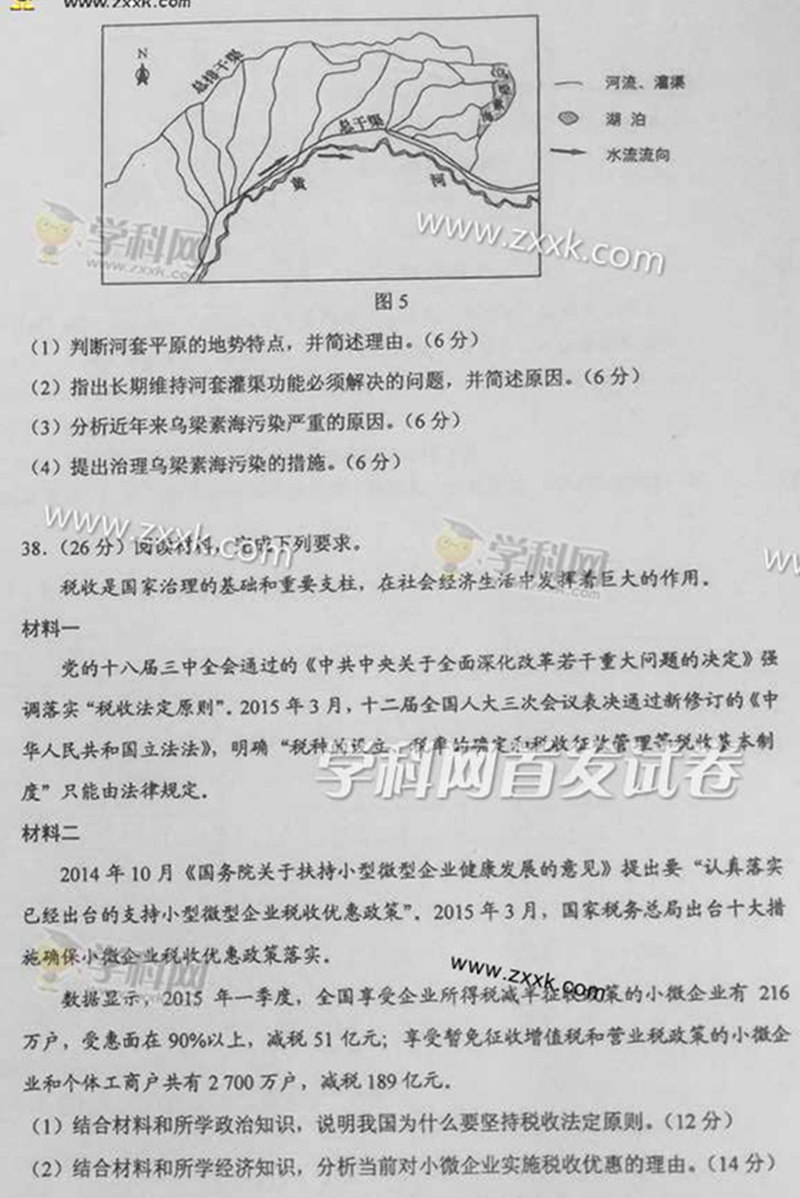 www.zxxk.com
N
总排干渠
乌梁素海
总干渠
黄
河
河流、灌渠
湖 泊
水流流向
学科网
www.zxxk.com
www.zxxk.com
图5
(1)判断河套平原的地势特点，并简述理由。(6分)
(2)指出长期维持河套灌渠功能必须解决的问题，并简述原因。(6分)
(3)分析近年来乌梁素海污染严重的原因。(6分)
(4)提出治理乌梁素海污染的措施。(6分)
www.zxxk.com
学科网
38.(26分)阅读材料，完成下列要求。
税收是国家治理的基础和重要支柱，在社会经济生活中发挥着巨大的作用。
材料一
党的十八届三中全会通过的《中共中央关于全面深化改革若干重大问题的决定》强
调落实“税收法定原则”。2015年3月，十二届全国人大三次会议表决通过新修订的《中
华人民共和国立法法》，明确“税种的设立、税率的确定和税收征收管理等税收基本制
度”只能由法律规定。
学科网首发试卷
材料二
2014年10月《国务院关于扶持小型微型企业健康发展的意见》提出要“认真落实
已经出台的支持小型微型企业税收优惠政策”。2015年3月，国家税务总局出台十大措
施确保小微企业税收优惠政策落实。
学科网
www.zxxk.com
数据显示，2015 年一季度，全国享受企业所得税减半征收政策的小微企业有 216
万户，受惠面在90%以上，减税51亿元；享受暂免征收增值税和营业税政策的小微企
业和个体工商户共有2 700万户，减税189亿元。
(1)结合材料和所学政治知识，说明我国为什么要坚持税收法定原则。(12分)
(2)结合材料和所学经济知识，分析当前对小微企业实施税收优惠的理由。(14分)